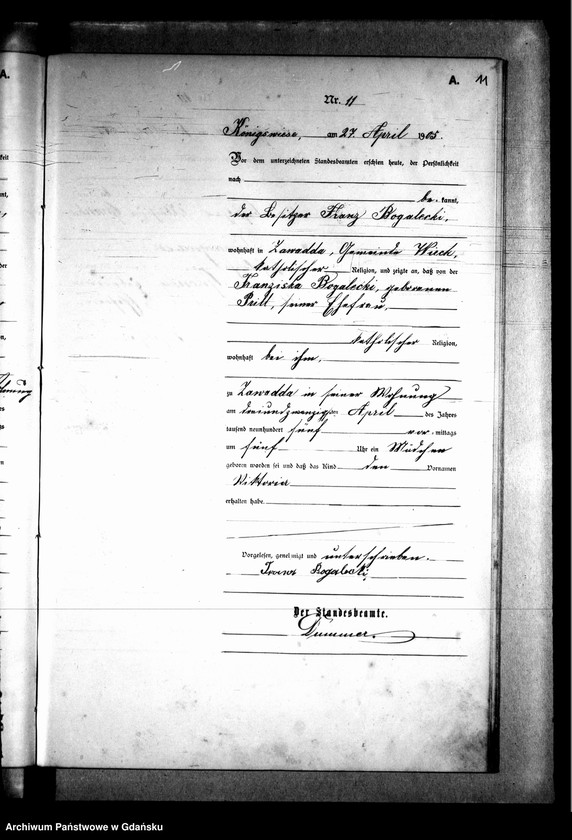 A. 11
Nr. 11
Königswiese, am 27. April 1905.
Vor dem unterzeichneten Standesbeamten erschien heute, der Persönlichkeit
nach
be kannt,
der Besitzer Franz Rogalecki,
wohnhaft in Zawadda, Gemeinde Wieck,
katholischer Religion, und zeigte an, daß von der
Franziska Rogalecki, geborenen
Prill, seiner Ehefrau,
katholischer Religion,
wohnhaft bei ihm,
zu Zawadda in seiner Wohnung
am dreiundzwanzigsten April des Jahres
tausend neunhundert fünf vor mittags
um fünf Uhr ein Mädchen
geboren worden sei und daß das Kind den Vornamen
Viktoria
erhalten habe.
Vorgelesen, genehmigt und unterschrieben.
Franz Rogalecki,
Der Standesbeamte.
Dummer.
Archiwum Państwowe w Gdańsku